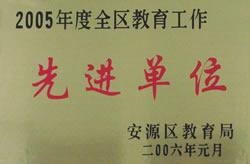 2005年度全区教育工作
先进单位
安源区教育局
二00六年元月